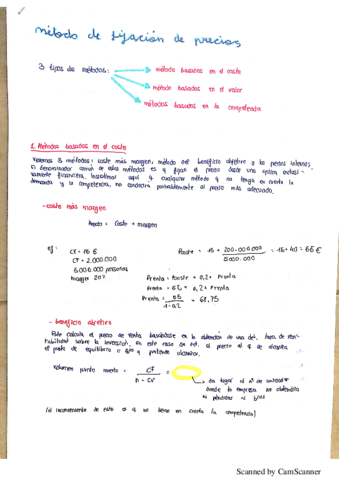 método de fijación de precios
3 tipos de métodos:
método basados en el coste
método basados en el valor
métodos basados en la competencia
1. Métodos basados en el coste
Veremos 3 métodos: coste más margen, método del beneficio objetivo y los precios internos.
El denominador común de estos métodos es q fijan el precio desde una óptica
financiera, insistimos aquí q cualquier método q no tenga en cuenta la
demanda y la competencia, no conducirá probablemente al precio más adecuado.
- coste más margen
Precio = Coste + margen
ej:
CF = 2.000.000
6.000.000 personas
margen 20%
= 16 + 40 = 56 €
Pventa = Pcoste + 0,2 × Pventa
Pventa = + 0,2 × Pventa
Pventa = = 68,75
- beneficio objetivo
Este calcula el precio de venta basándose en la obtención de una det. tasa de
sobre la inversión, en este caso en det. el precio al q se alcanza
el punto de equilibrio o Bº q pretende alcanzar.
Volumen punto muerto: CF =
da lugar al nº de unidades
donde la empresa no obtendrá
ni pérdidas ni bños
(el inconveniente de esto es q no tiene en cuenta la competencia)
Scanned by CamScanner